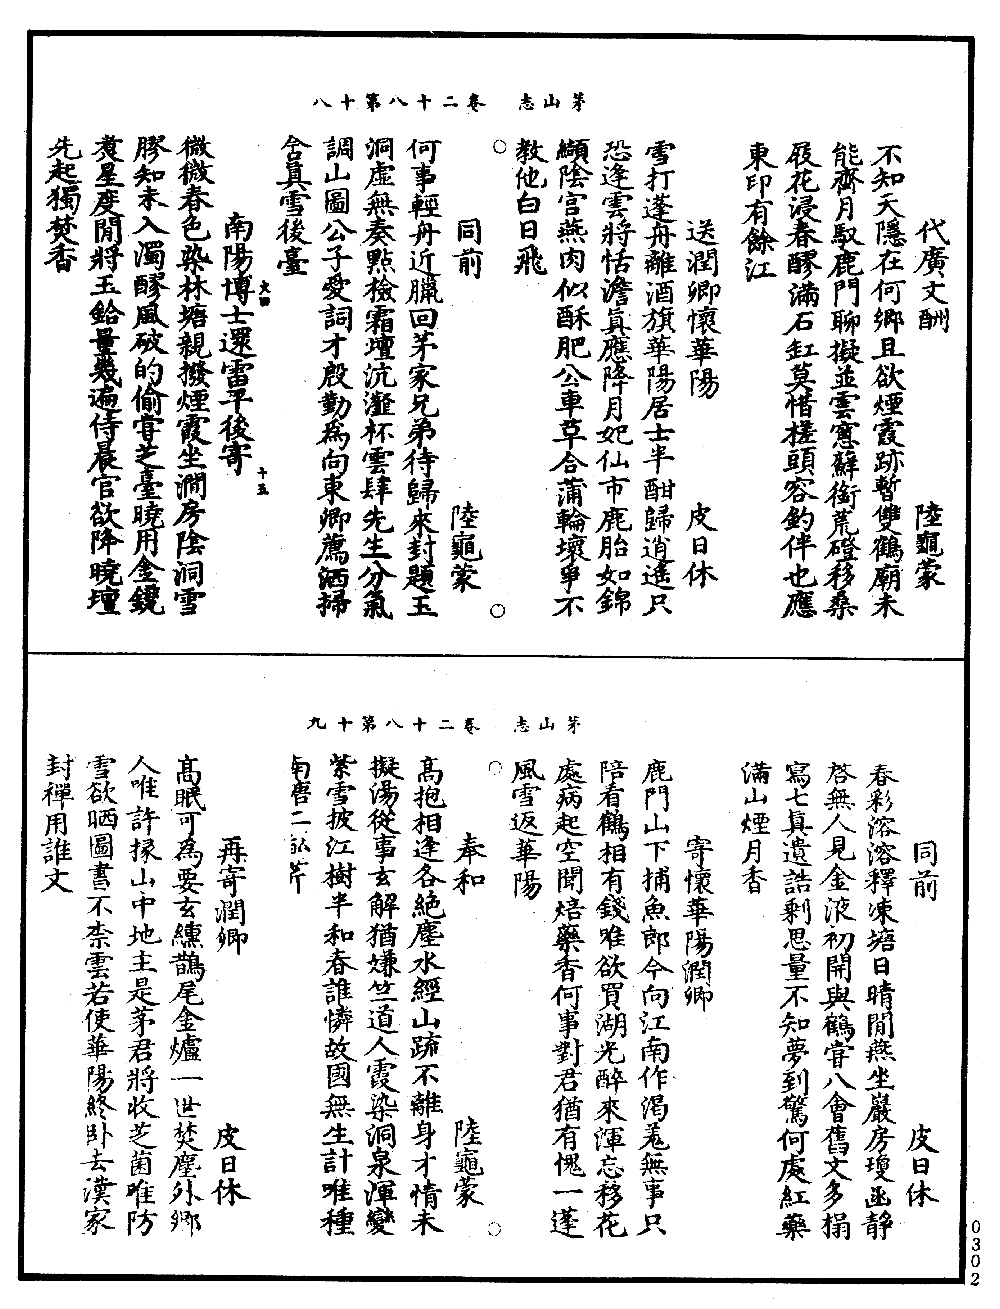 茅山志　卷二十八第十八
代廣文酬　陸龜蒙
不知天隱在何鄉且欲煙霞跡暫雙鶴廟未
能齊月馭鹿門聊擬並雲窻蘚銜荒磴移桑
屐花浸春醪滿石缸莫惜槎頭容釣伴也應
東印有餘江
送潤卿懷華陽　皮日休
雪打蓬舟離酒旗華陽居士半酣歸逍遙只
恐逢雲將恬澹真應降月妃仙市鹿胎如錦
纈陰宫燕肉似酥肥公車草合蒲輪壞爭不
教他白日飛
同前　陸龜蒙
何事輕舟近臘回茅家兄弟待歸來封題玉
洞虛無奏點檢霜壇沆瀣杯雲肆先生分氣
調山圖公子愛詞才殷勤為向東鄉薦洒掃
含真雪後臺
南陽博士還雷平後寄
火四　十五
微微春色染林塘親撥煙霞坐澗房陰洞雪
膠知未入濁醪風破的偷嘗芝臺曉用金鐃
煑星度閒將玉鉿量幾遍侍晨官欲降曉壇
先起獨焚香
茅山志　卷二十八第十九
同前　皮日休
春彩溶溶釋凍塘日晴閒燕坐巖房瓊函靜
啓無人見金液初開與鶴嘗八會舊文多搨
寫七真遺誥剩思量不知夢到驚何處紅藥
滿山煙月香
寄懷華陽潤卿
鹿門山下捕魚郎今向江南作渴羌無事只
陪看鶴相有錢唯欲買湖光醉來渾忘移花
處病起空聞焙藥香何事對君猶有愧一蓬
風雪返華陽
奉和　陸龜蒙
高抱相逢各絶塵水經山疏不離身才情未
擬湯從事玄解猶嫌竺道人霞染洞泉渾變
紫雪披江樹半和春誰憐故國無生計唯種
南唐二畝芹
再寄潤卿　皮日休
高眠可為要玄纁鵲尾金爐一世焚塵外鄉
人唯許掾山中地主是茅君將收芝菌唯防
雪欲晒圖書不柰雲若使華陽終卧去漢家
封禪用誰文
0302